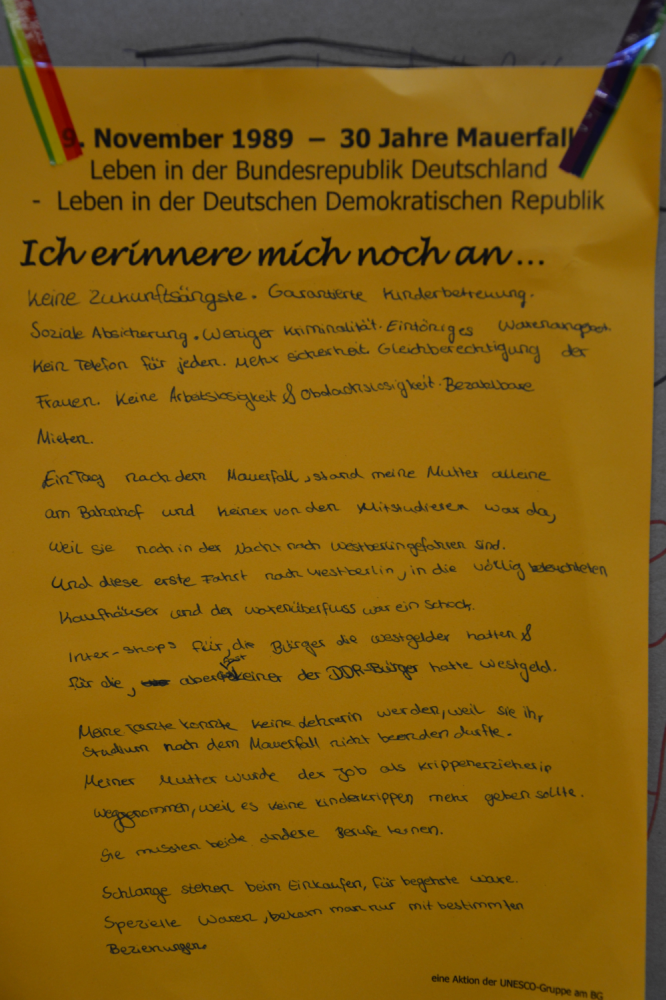 9. November 1989 – 30 Jahre Mauerfall
Leben in der Bundesrepublik Deutschland
- Leben in der Deutschen Demokratischen Republik
Ich erinnere mich noch an...
Keine Zukunftsängste. Garantierte Kinderbetreuung.
Soziale Absicherung. Weniger Kriminalität. Eintöniges Warenangebot.
Kein Telefon für jeden. Mehr Sicherheit. Gleichberechtigung der
Frauen. Keine Arbeitslosigkeit & Obdachslosigkeit. Bezahlbare
Mieten.
Ein Tag nach dem Mauerfall, stand meine Mutter alleine
am Bahnhof und keiner von den Mitstudieren war da,
weil sie noch in der Nacht nach Westberlin gefahren sind.
Und diese erste Fahrt nach Westberlin, in die völlig beleuchteten
Kaufhäuser und der Warenüberfluss war ein Schock.
Inter-shops für die Bürger die Westgelder hatten &
für die, aber fast keiner der DDR-Bürger hatte Westgeld.
Meine Tante konnte keine Lehrerin werden, weil sie ihr
Studium nach dem Mauerfall nicht beenden durfte.
Meiner Mutter wurde der Job als Krippenerzieherin
weggenommen, weil es keine Kinderkrippen mehr geben sollte.
Sie mussten beide andere Berufe lernen.
Schlange stehen beim Einkaufen, für begehrte Ware.
Spezielle Waren, bekam man nur mit bestimmten
Beziehungen.
eine Aktion der UNESCO-Gruppe am BG